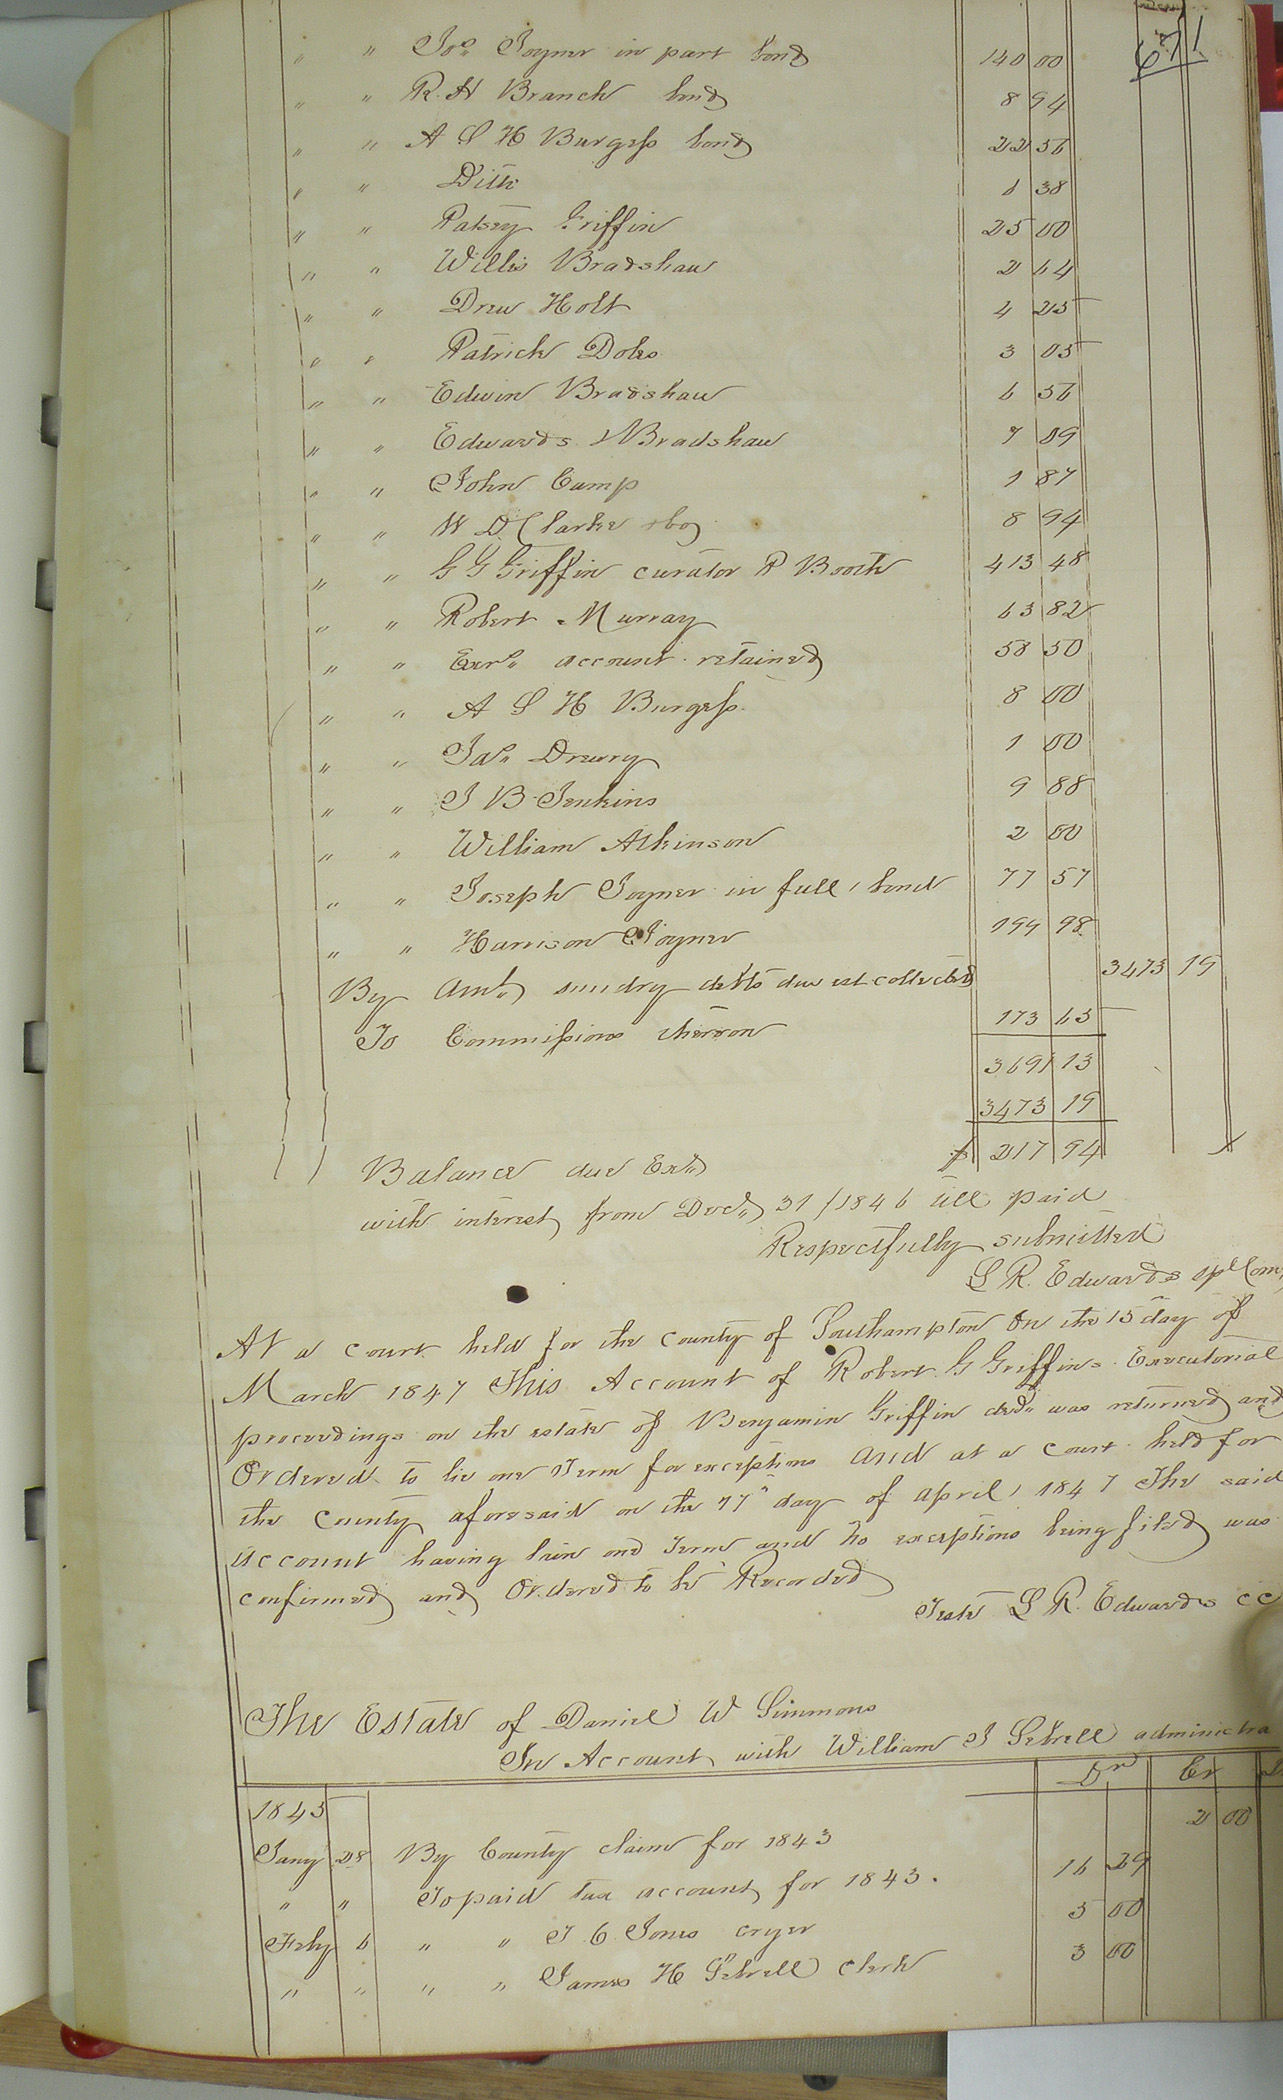 671
" " Jos. Joyner in part bond 140 00
" " R. H Branch bond 8 94
" " A S H Burgess bond 22 56
" " Ditto 6 38
" " Patsey Griffin 25 00
" " Willis Bradshaw 2 64
" " Drew Holt 4 25
" " Patrick Doles 3 05
" " Edwin Bradshaw 6 56
" " Edwards & Bradshaw 7 09
" " John Camp 1 87
" " W D Clarke 8 94
" " G G Griffin curator P Booth 413 48
" " Robert Murray 63 82
" " Exrs. account retained 58 50
" " A S H Burgess 8 00
" " Jas. Drewry 1 00
" " J B Jenkins 9 88
" " William Atkinson 2 00
" " Joseph Joyner in full, bond 77 57
" " Harrison Joyner 199 98
By Amt. sundry debts due est collected 3473 19
To Commissions thereon 173 65
3691 13
3473 19
Balance due Exr. $ 217 94
with interest from Decr. 31/1846 till paid
Respectfully submitted
L R. Edwards spl Com
At a court held for the county of Southampton on the 15 day of
March 1847 This Account of Robert G Griffins Executorial
proceedings on the estate of Benjamin Griffin decd. was returned and
Ordered to lie one Term for exceptions And at a Court held for
the County aforesaid on the day of April, 1847 The said
account having lain one Term and no exceptions being filed was
confirmed and Ordered to be Recorded
Teste L R. Edwards CC
The Estate of Daniel W Simmons
In Account with William J Sebrell administra
Dr Cr
1845
Jany 28 By County claim for 1843 2 00
" " To paid tax account for 1843. 16 29
Feby 6 " " J C Jones cryer 5 00
" " " " James H Sebrell Clerk 3 00